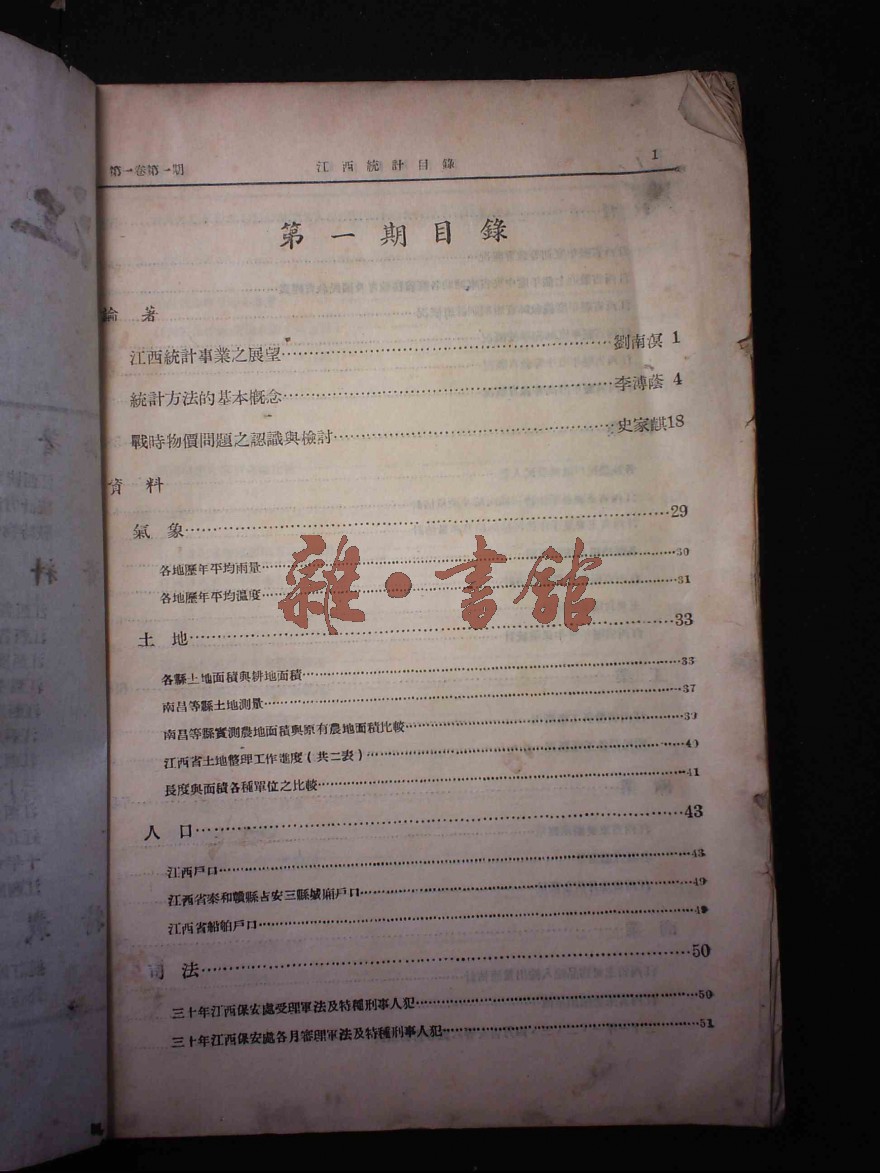 第一卷第一期 江西統計目錄 1
第一期目錄
論著
江西統計事業之展望 劉南溟 1
統計方法的基本概念 李溥蔭 4
戰時物價問題之認識與檢討 史家麒 18
資料
氣象 29
各地歷年平均雨量 30
各地歷年平均溫度 31
土地 33
各縣土地面積與耕地面積 33
南昌等縣土地測量 37
南昌等縣實測農地面積與原有農地面積比較 39
江西省土地整理工作進度(共二表) 40
長度與面積各種單位之比較 41
人口 43
江西戶口 43
江西省泰和贛縣吉安三縣城廂戶口 49
江西省船舶戶口 49
司法 50
三十年江西保安處受理軍法及特種刑事人犯 50
三十年江西保安處各月審理軍法及特種刑事人犯 51
雜·書館